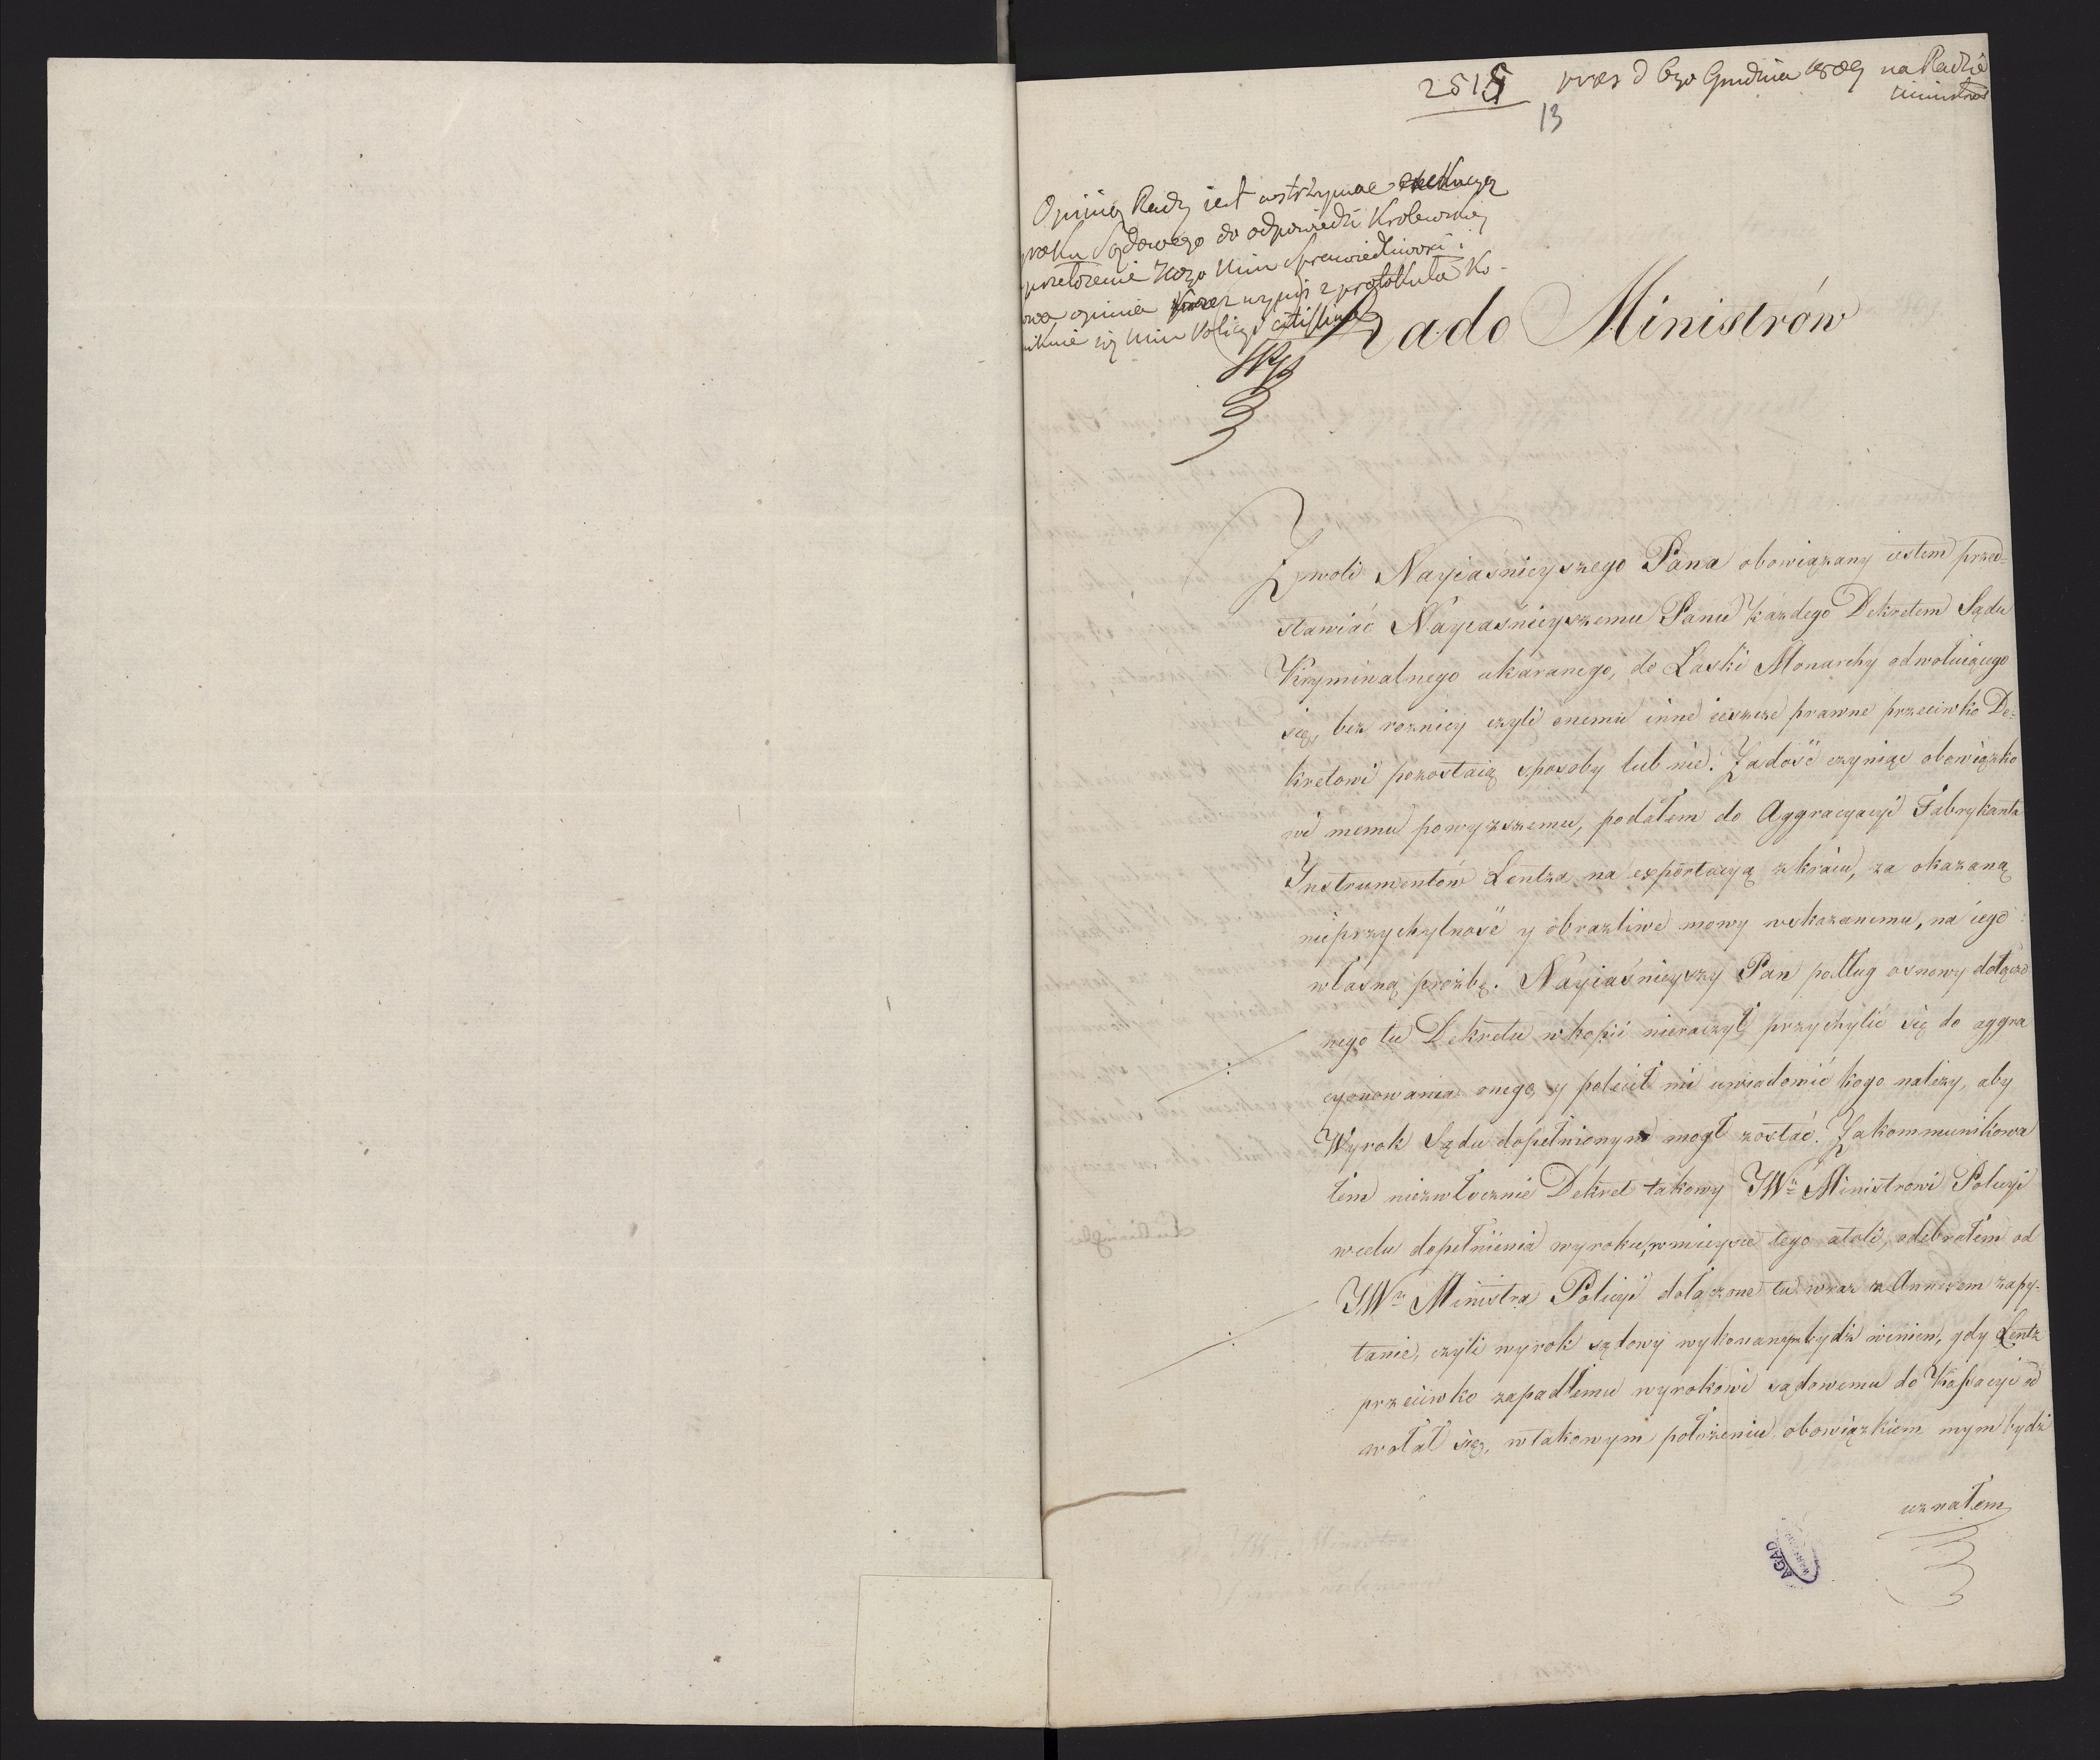 2515 prez d 6go Grudnia 1809 na Radzie
Ministrów
13
Opinią Rady iest wstrzymac exekucyą
Sądowego do odpowiedzi Krolewskiey
przełożenie Min Sprawiedliwości i
opinia przez wypis z protokułu ko-
się Min Policyi
Rado Ministrów
Z woli Nayiaśnieyszego Pana obowiązany iestem przed-
stawiać Nayiaśnieyszemu Panu każdego Dekretem Sądu
Kryminalnego ukaranego, do Łaski Monarchy odwołuiącego
się, bez rożnicy czyli onemu inne ieszcze prawne przeciwko De=
kretowi pozostaią sposoby lub nie. Zadość czyniąc obowiązko
wi memu powyższemu, podałem do Aggracyacyi Fabrykanta
Instrumentów Lentza na exportacyą z kraiu, za okazaną
nieprzychylność y obrazliwe mowy wskazanemu, na iego
własną prożbę. Nayiaśnieyszy Pan podług osnowy dołączo
nego tu Dekretu w kopii nieraczył przychylić się do aggra
cyonowania onego, y polecił mi uwiadomić kogo należy, aby
Wyrok Sądu dopełnionym mogł zostać. Zakommunikowa
łem niezwłocznie Dekret takowy JWu Ministrowi Policyi
wcelu dopełnienia wyroku, wmieysce tego atoli, odebrałem od
JWo Ministra Policyi dołączone tu wraz z Annexem zapy-
tanie, czyli wyrok sądowy wykonany bydz winien, gdy Lentz
przeciwko zapadłemu wyrokowi sądowemu do Kassacyi od
wołał się, wtakowym położeniu obowiązkiem mym bydź
uznałem
AGAD